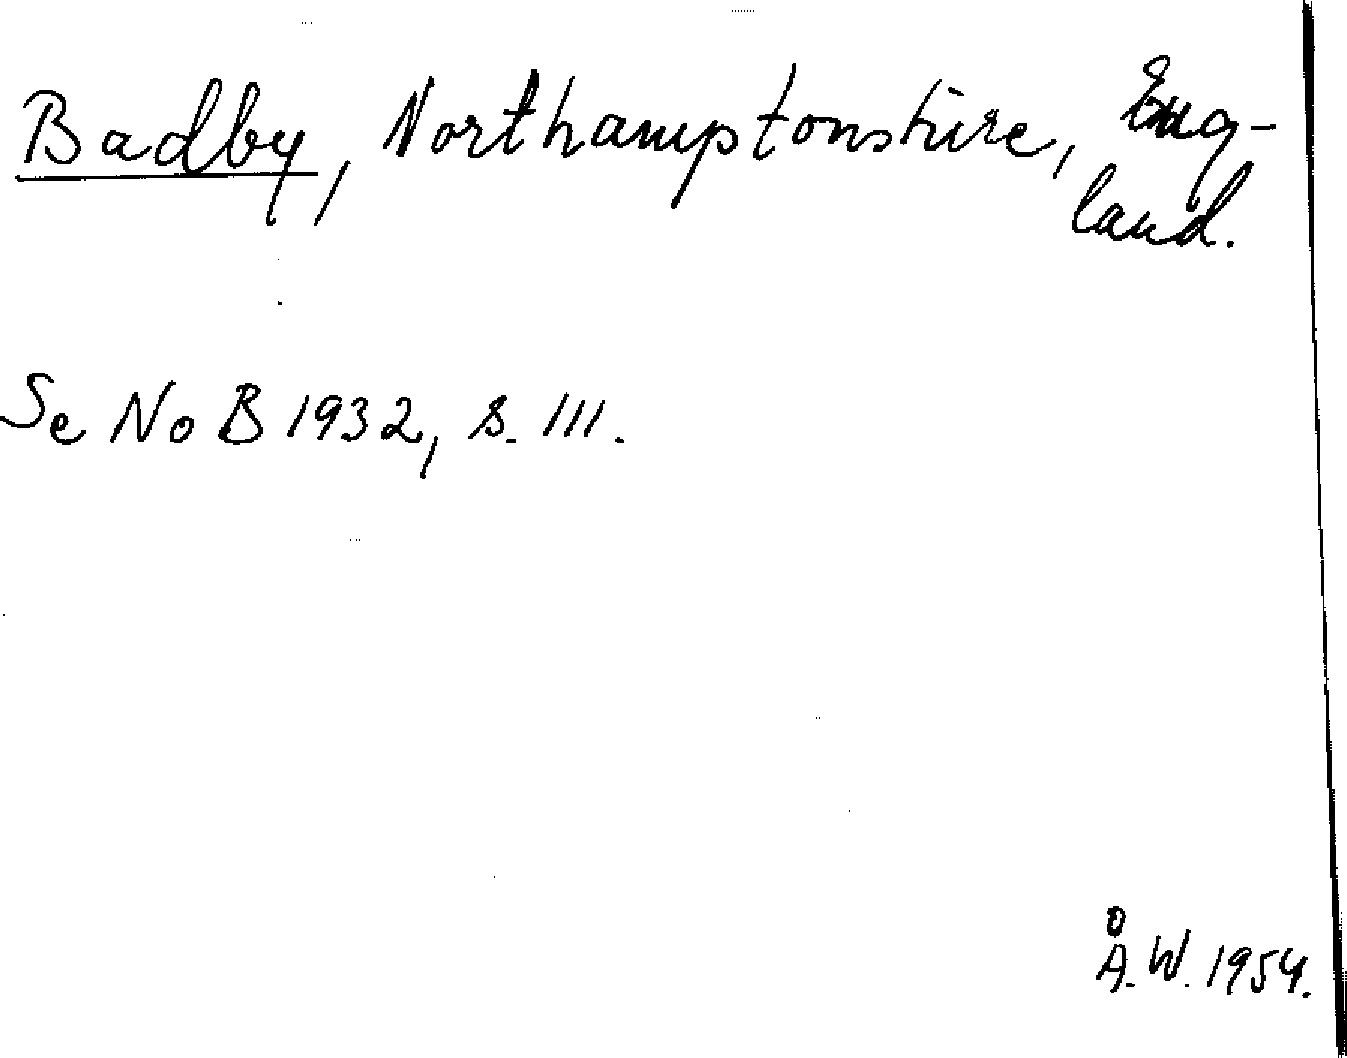 Badby, Northamptonshire, Eng-
land.
Se NoB 1932, s. 111.
Å. W. 1954.